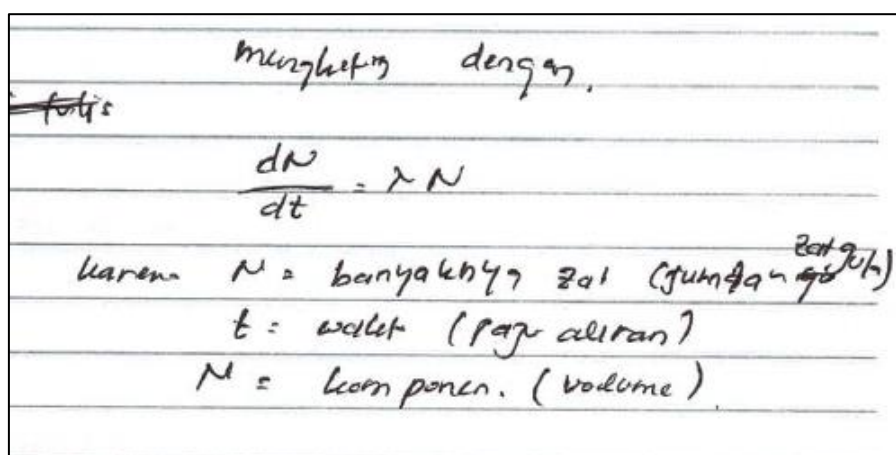 dengan.
dN/dt = λN
karena N = banyaknya zat (jumlah zat gula)
t = waktu (laju aliran)
N = komponen. (volume)